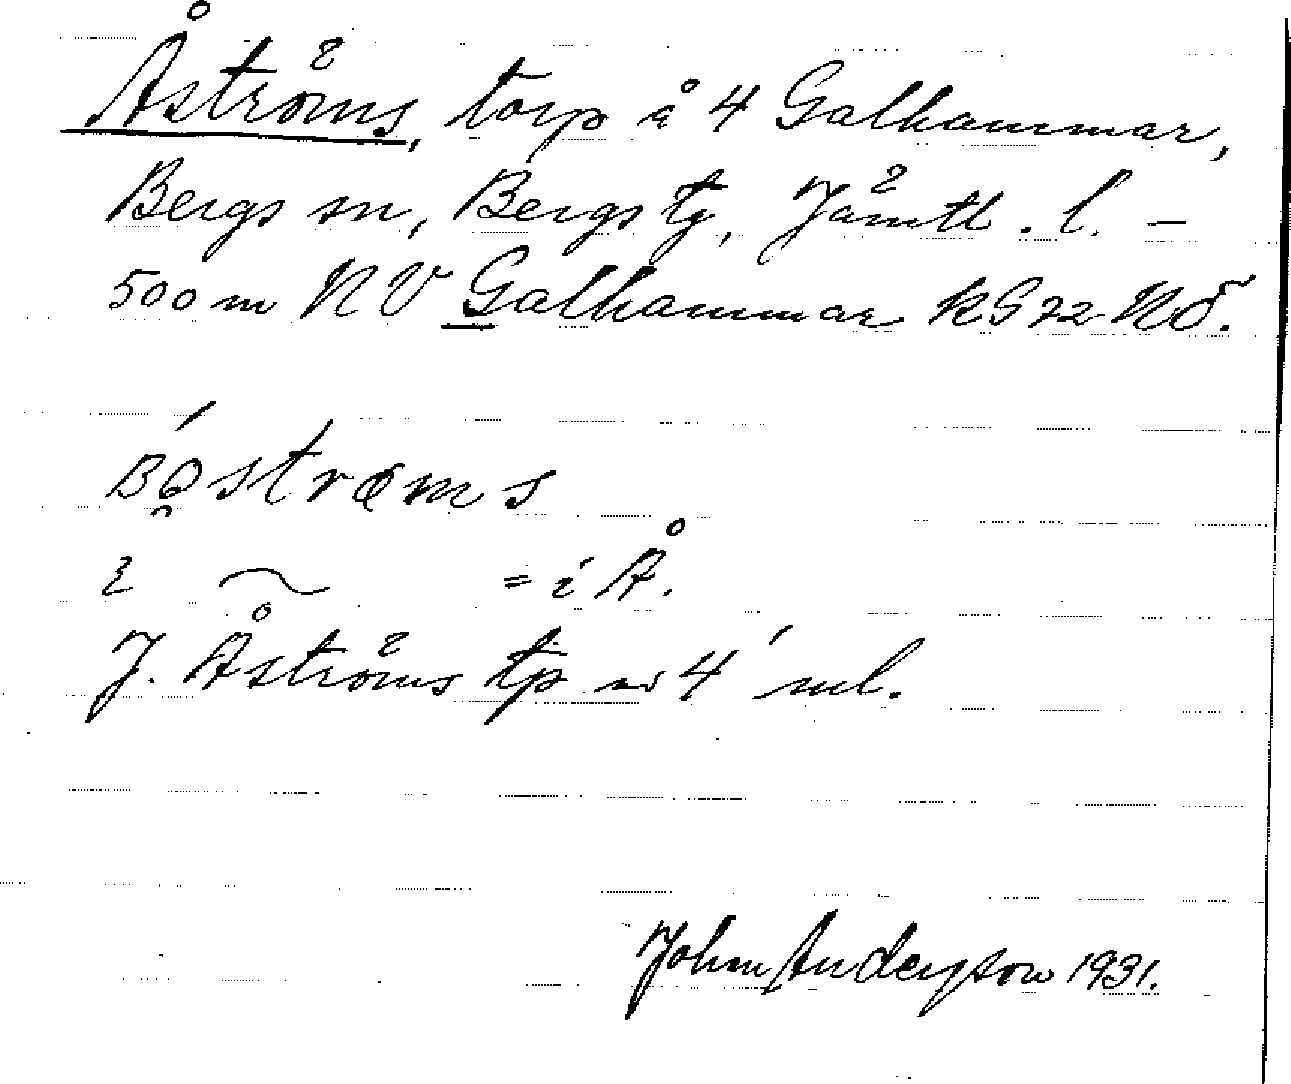 Åströms, torp å 4 Galhammar,
Bergs sn, Bergs tg, Jämtl. l. –
500 m NV Galhammar kG 72 NÖ.
Bǫ́strøms
ɩ ~ = i Å.
J. Åströms tp nr 4' ml.
John Anderson 1931.